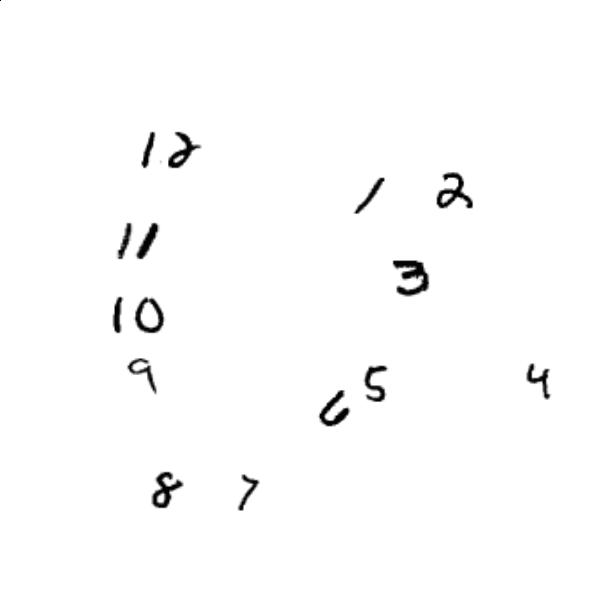 12
1 2
11
3
10
9
5 4
6
8 7